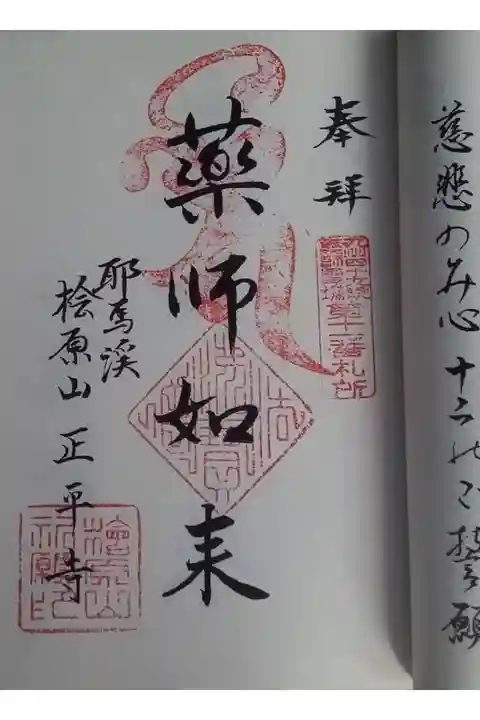 慈悲のみ心十二のご誓願
奉拝
九州四十九院
薬師霊場
第十一番札所
薬師如来
耶馬渓
桧原山正平寺